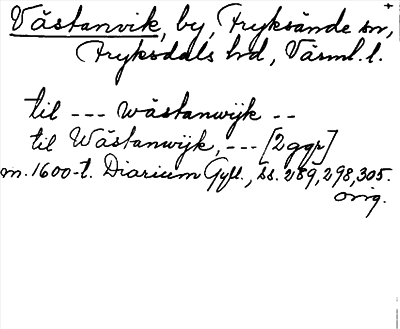 Västanvik, by, Fryksände sn,
Fryksdals hd, Värml. l.
til --- wästanwijk --
til Wästanwijk, --- [2 ggr]
m. 1600-t. Diarium Gyll., ss. 289, 298, 305.
orig.